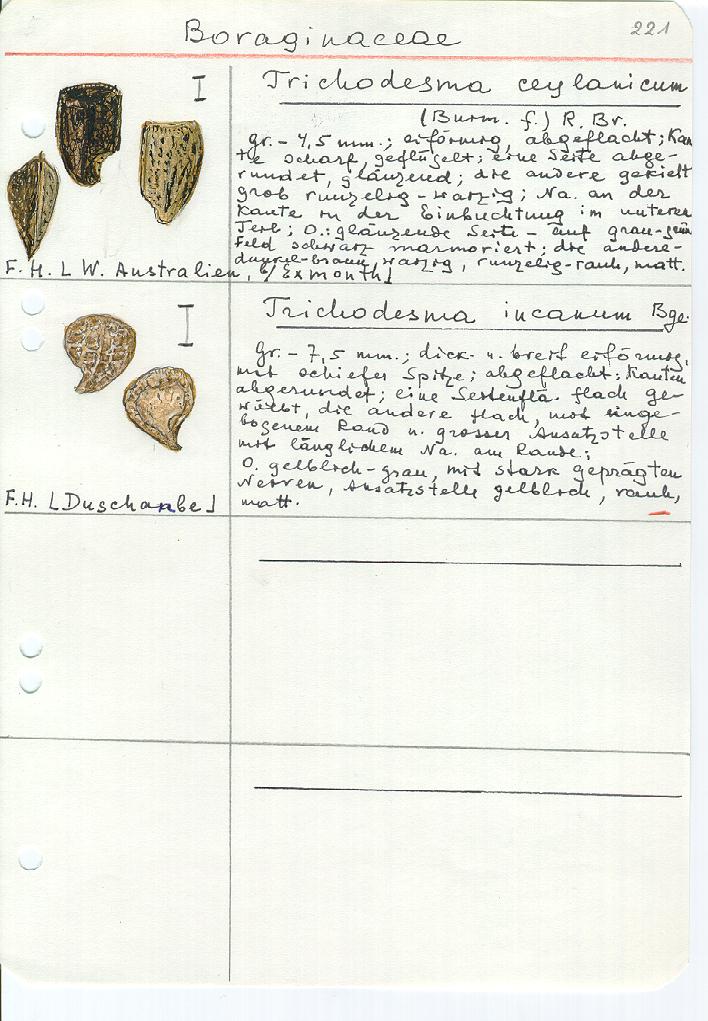 Boraginaceae
221
Trichodesma ceylanicum
(Burm. f.) R. Br.
gr. - 4,5 mm.; eiförmig, abgeflacht; Kan
te scharf, geflügelt; eine Seite abge-
rundet, glänzend; die andere gekielt
grob runzelig-warzig; Na. an der
Kante in der Einbuchtung im unteren
Teil; O.: glänzende Seite - auf grau-
Feld schwarz marmoriert; die andere-
dunkel-braun warzig, runzelig-rauh, matt.
F. H. L W. Australien, month
Trichodesma incanum Bge.
Gr. - 7,5 mm.; dick u. breit eiförmig,
mit schiefer Spitze; abgeflacht; Kanten
abgerundet; eine Seitenflä. flach ge-
wölbt, die andere flach, mit einge-
bogenem Rand u. grosser Ansatzstelle
mit länglichem Na. am Rande;
O. gelblich-grau, mit stark geprägten
Nerven, Ansatzstelle gelblich, rauh,
matt.
F.H. [Duschanbe]